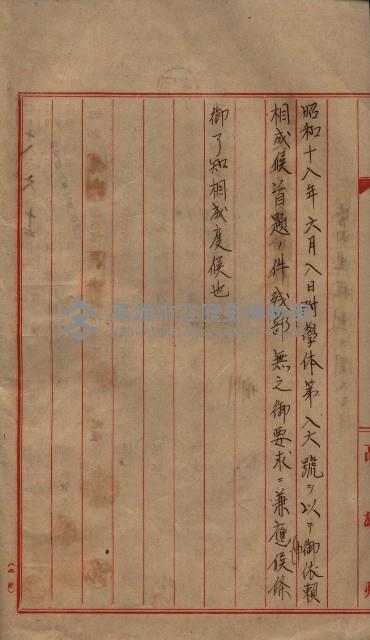 昭和十八年六月八日附學体第八六號ヲ以テ御依頼
相成候首題ノ件残部無之御要求ニ兼應候條
御了知相成度候也
高雄州
高雄市立歷史博物館